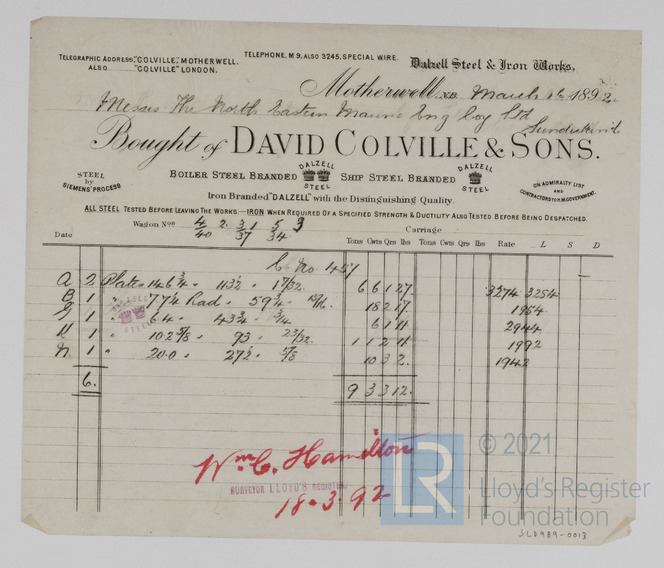 TELEGRAPHIC ADDRESS, "COLVILLE," MOTHERWELL.
ALSO "COLVILLE" LONDON.
TELEPHONE, M 9, ALSO 3245, SPECIAL WIRE.
Dalzell Steel & Iron Works,
Motherwell, N.B. March 16 1892.
Messrs The North Eastern Marine Eng Coy Ltd
Sunderland
Bought of DAVID COLVILLE & SONS.
STEEL by SIEMENS' PROCESS
BOILER STEEL BRANDED DALZELL STEEL SHIP STEEL BRANDED DALZELL STEEL
ON ADMIRALTY LIST AND CONTRACTORS FOR H.M. GOVERNMENT.
Iron Branded "DALZELL" with the Distinguishing Quality.
ALL STEEL TESTED BEFORE LEAVING THE WORKS.—IRON WHEN REQUIRED OF A SPECIFIED STRENGTH & DUCTILITY ALSO TESTED BEFORE BEING DESPATCHED.
Wagon Nos 4/40 2. 3/37 1 5/34 3
Carriage
Date Tons Cwts Qrs lbs Tons Cwts Qrs lbs Rate L S D
No 457
A 2 Plates 146 3/4 " 113 1/2 " 1 17/32. 6 6 1 27 3274 3254
B 1 " 77 1/4 Rad " 59 3/4 " 18 2 17. 1954
1 " 64 " 43 3/4 " 3/4 6 1 11 2944
1 " 102 5/8 " 93 " 23/32. 1 1 2 11 1992
N. 1 " 200 " 27 1/2 " 5/8 10 3 2. 1942
6. 9 3 3 12.
DALZELL STEEL
Wm. C. Hamilton
SURVEYOR LLOYD'S REGISTER
18.3.92
LR © 2021
Lloyd's Register
Foundation
SLD989-0013